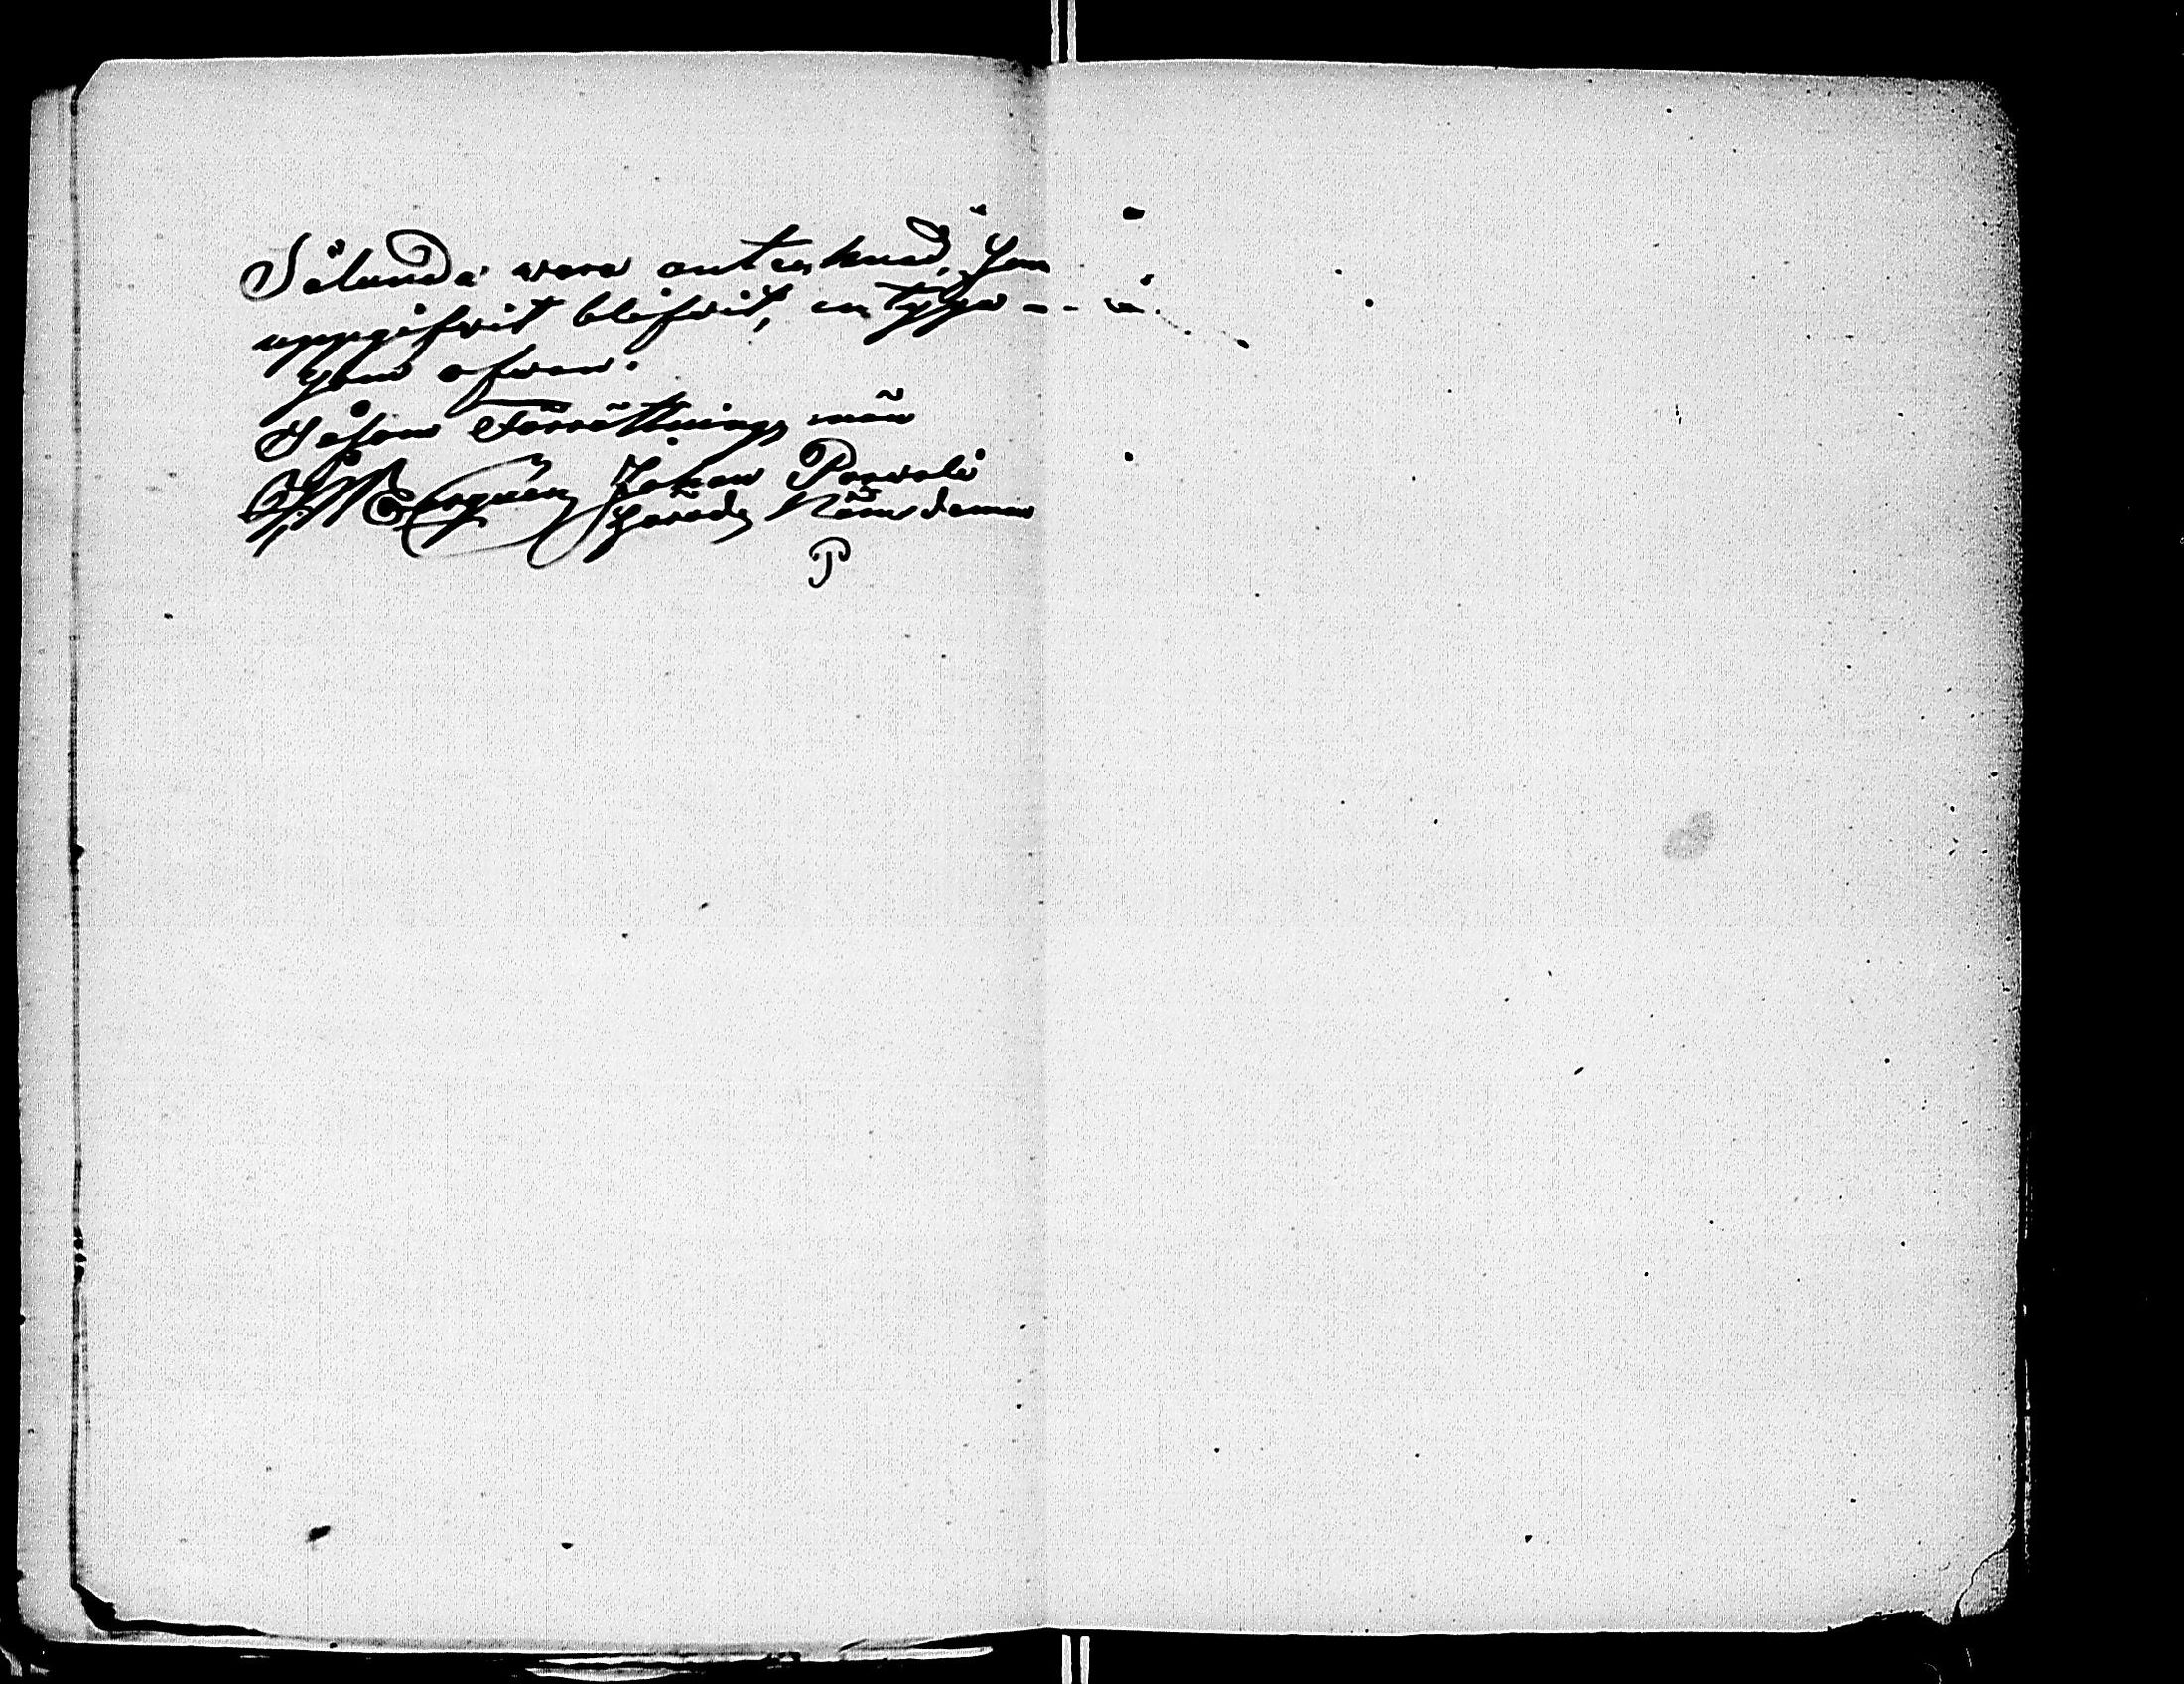 Sålunda vara antecknad, som
uppgifvit blifvit, intyga
som ofvan.
Såsom Förrättningsmän
Bergren Johan Porvali
Härads Nämndeman
P